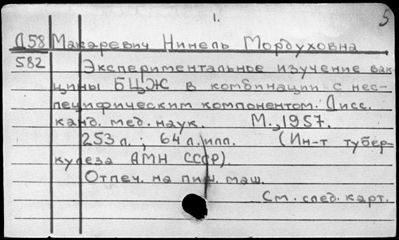 1.
5
Д58 Макаревич Нинель Мордуховна
582 Экспериментальное изучение вак-
цины БЦЖ в комбинации с нес-
пецифическим компонентом. Дисс.
канд. мед. наук. М., 1957.
253 л.; 64 л. илл. (Ин-т тубер-
кулеза АМН СССР).
Отпеч. на пиш. маш.
См. след. карт.